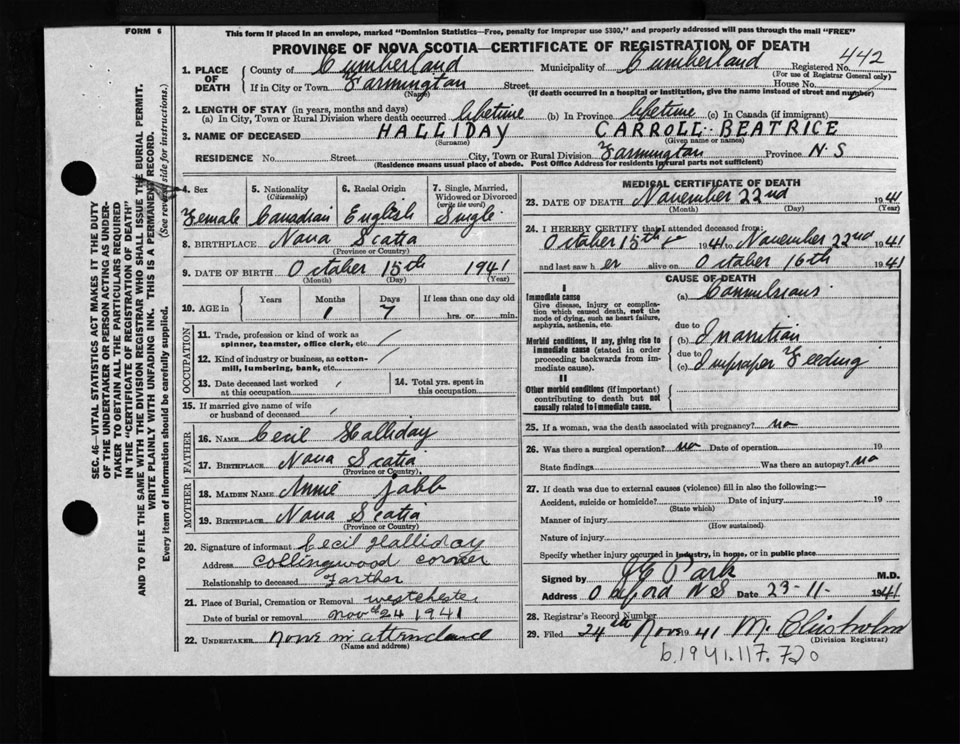 FORM 6
This form if placed in an envelope, marked "Dominion Statistics—Free, penalty for improper use $300," and properly addressed will pass through the mail "FREE"
PROVINCE OF NOVA SCOTIA—CERTIFICATE OF REGISTRATION OF DEATH
1. PLACE OF DEATH
County of Cumberland Municipality of Cumberland Registered No. 442
(For use of Registrar General only)
If in City or Town Farmington Street House No.
(Name) (If death occurred in a hospital or institution, give the name instead of street and number)
2. LENGTH OF STAY (in years, months and days)
(a) In City, Town or Rural Division where death occurred lifetime (b) In Province lifetime (c) In Canada (if immigrant)
3. NAME OF DECEASED HALLIDAY CARROLL BEATRICE
(Surname) (Given name or names)
RESIDENCE No. Street City, Town or Rural Division Farmington Province N.S
(Residence means usual place of abode. Post Office Address for residents in rural parts not sufficient)
4. Sex
Female
5. Nationality
(Citizenship)
Canadian
6. Racial Origin
English
7. Single, Married, Widowed or Divorced
(write the word)
Single
8. BIRTHPLACE Nova Scotia
(Province or Country)
9. DATE OF BIRTH October 15th 1941
(Month) (Day) (Year)
10. AGE in
Years Months Days If less than one day old
1 7 hrs. or min.
OCCUPATION
11. Trade, profession or kind of work as spinner, teamster, office clerk, etc. /
12. Kind of industry or business, as cotton-mill, lumbering, bank, etc. /
13. Date deceased last worked at this occupation /
14. Total yrs. spent in this occupation
15. If married give name of wife or husband of deceased /
FATHER
16. NAME Cecil Halliday
17. BIRTHPLACE Nova Scotia
(Province or Country)
MOTHER
18. MAIDEN NAME Annie
19. BIRTHPLACE Nova Scotia
(Province or Country)
20. Signature of informant Cecil Halliday
Address Collingwood Corner
Relationship to deceased Farther
21. Place of Burial, Cremation or Removal westchester
Date of burial or removal Nov 24 1941
22. UNDERTAKER None in attendance
(Name and address)
MEDICAL CERTIFICATE OF DEATH
23. DATE OF DEATH November 22nd 1941
(Month) (Day) (Year)
24. I HEREBY CERTIFY that I attended deceased from:
October 15th 1941 to November 22nd 1941
and last saw her alive on October 16th 1941
CAUSE OF DEATH
I
Immediate cause
Give disease, injury or complication which caused death, not the mode of dying, such as heart failure, asphyxia, asthenia, etc.
(a) Convulsions
due to
Morbid conditions, if any, giving rise to immediate cause (stated in order proceeding backwards from immediate cause).
(b) Inanition
due to
(c) Improper Feeding
II
Other morbid conditions (if important) contributing to death but not causally related to immediate cause.
25. If a woman, was the death associated with pregnancy? no
26. Was there a surgical operation? no Date of operation 19
State findings Was there an autopsy? no
27. If death was due to external causes (violence) fill in also the following:—
Accident, suicide or homicide? Date of injury 19
(State which)
Manner of injury
(How sustained)
Nature of injury
Specify whether injury occurred in industry, in home, or in public place
Signed by Park M.D.
Address Oxford N S Date 23-11-1941
28. Registrar's Record Number
29. Filed 24th Nov 1941 M. Chisholm
(Division Registrar)
b.1941.117.720
SEC. 46—VITAL STATISTICS ACT MAKES IT THE DUTY
OF THE UNDERTAKER OR PERSON ACTING AS UNDER-
TAKER TO OBTAIN ALL THE PARTICULARS REQUIRED
IN THE "CERTIFICATE OF REGISTRATION OF DEATH"
AND TO FILE THE SAME WITH THE DIVISION REGISTRAR WHO SHALL ISSUE THE BURIAL PERMIT.
WRITE PLAINLY WITH UNFADING INK. THIS IS A PERMANENT RECORD.
Every item of information should be carefully supplied. (See reverse side for instructions.)